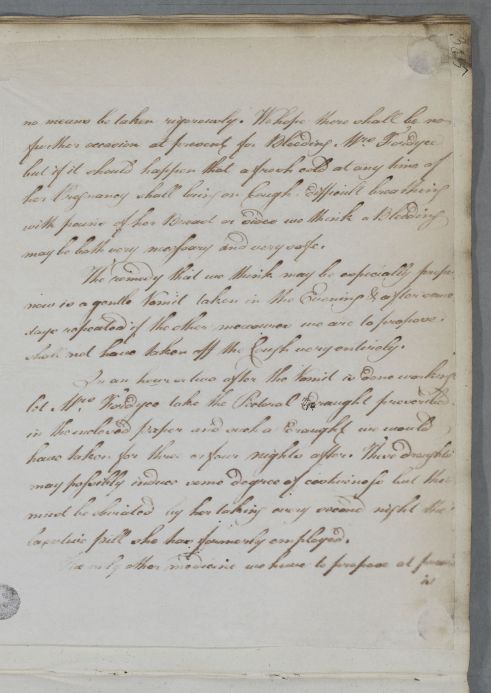 no means be taken rigorously. We hope there shall be no
further occasion at present for Bleeding Mrs. Fordyce
but if it should happen that a fresh cold at any time of
her Pregnancy shall bring on Cough difficult breathing
with pains of her Breast or sides we think a Bleeding
may be both very necessary and very safe.
The remedy that we think may be especially proper
now is a gentle Vomit taken in the Evening & after some
days repeated if the other measures we are to propose
shall not have taken off the Cough very entirely.
In an hour or two after the Vomit is done working
let Mrs. Fordyce take the Pectoral Draught prescribed
in the enclosed paper and such a Draught we would
have taken for three or four nights after. These draughts
may possibly induce some degree of costiveness but that
must be obviated by her taking every second night the
laxative pill she has formerly employed.
The only other medicine we have to propose at present
is